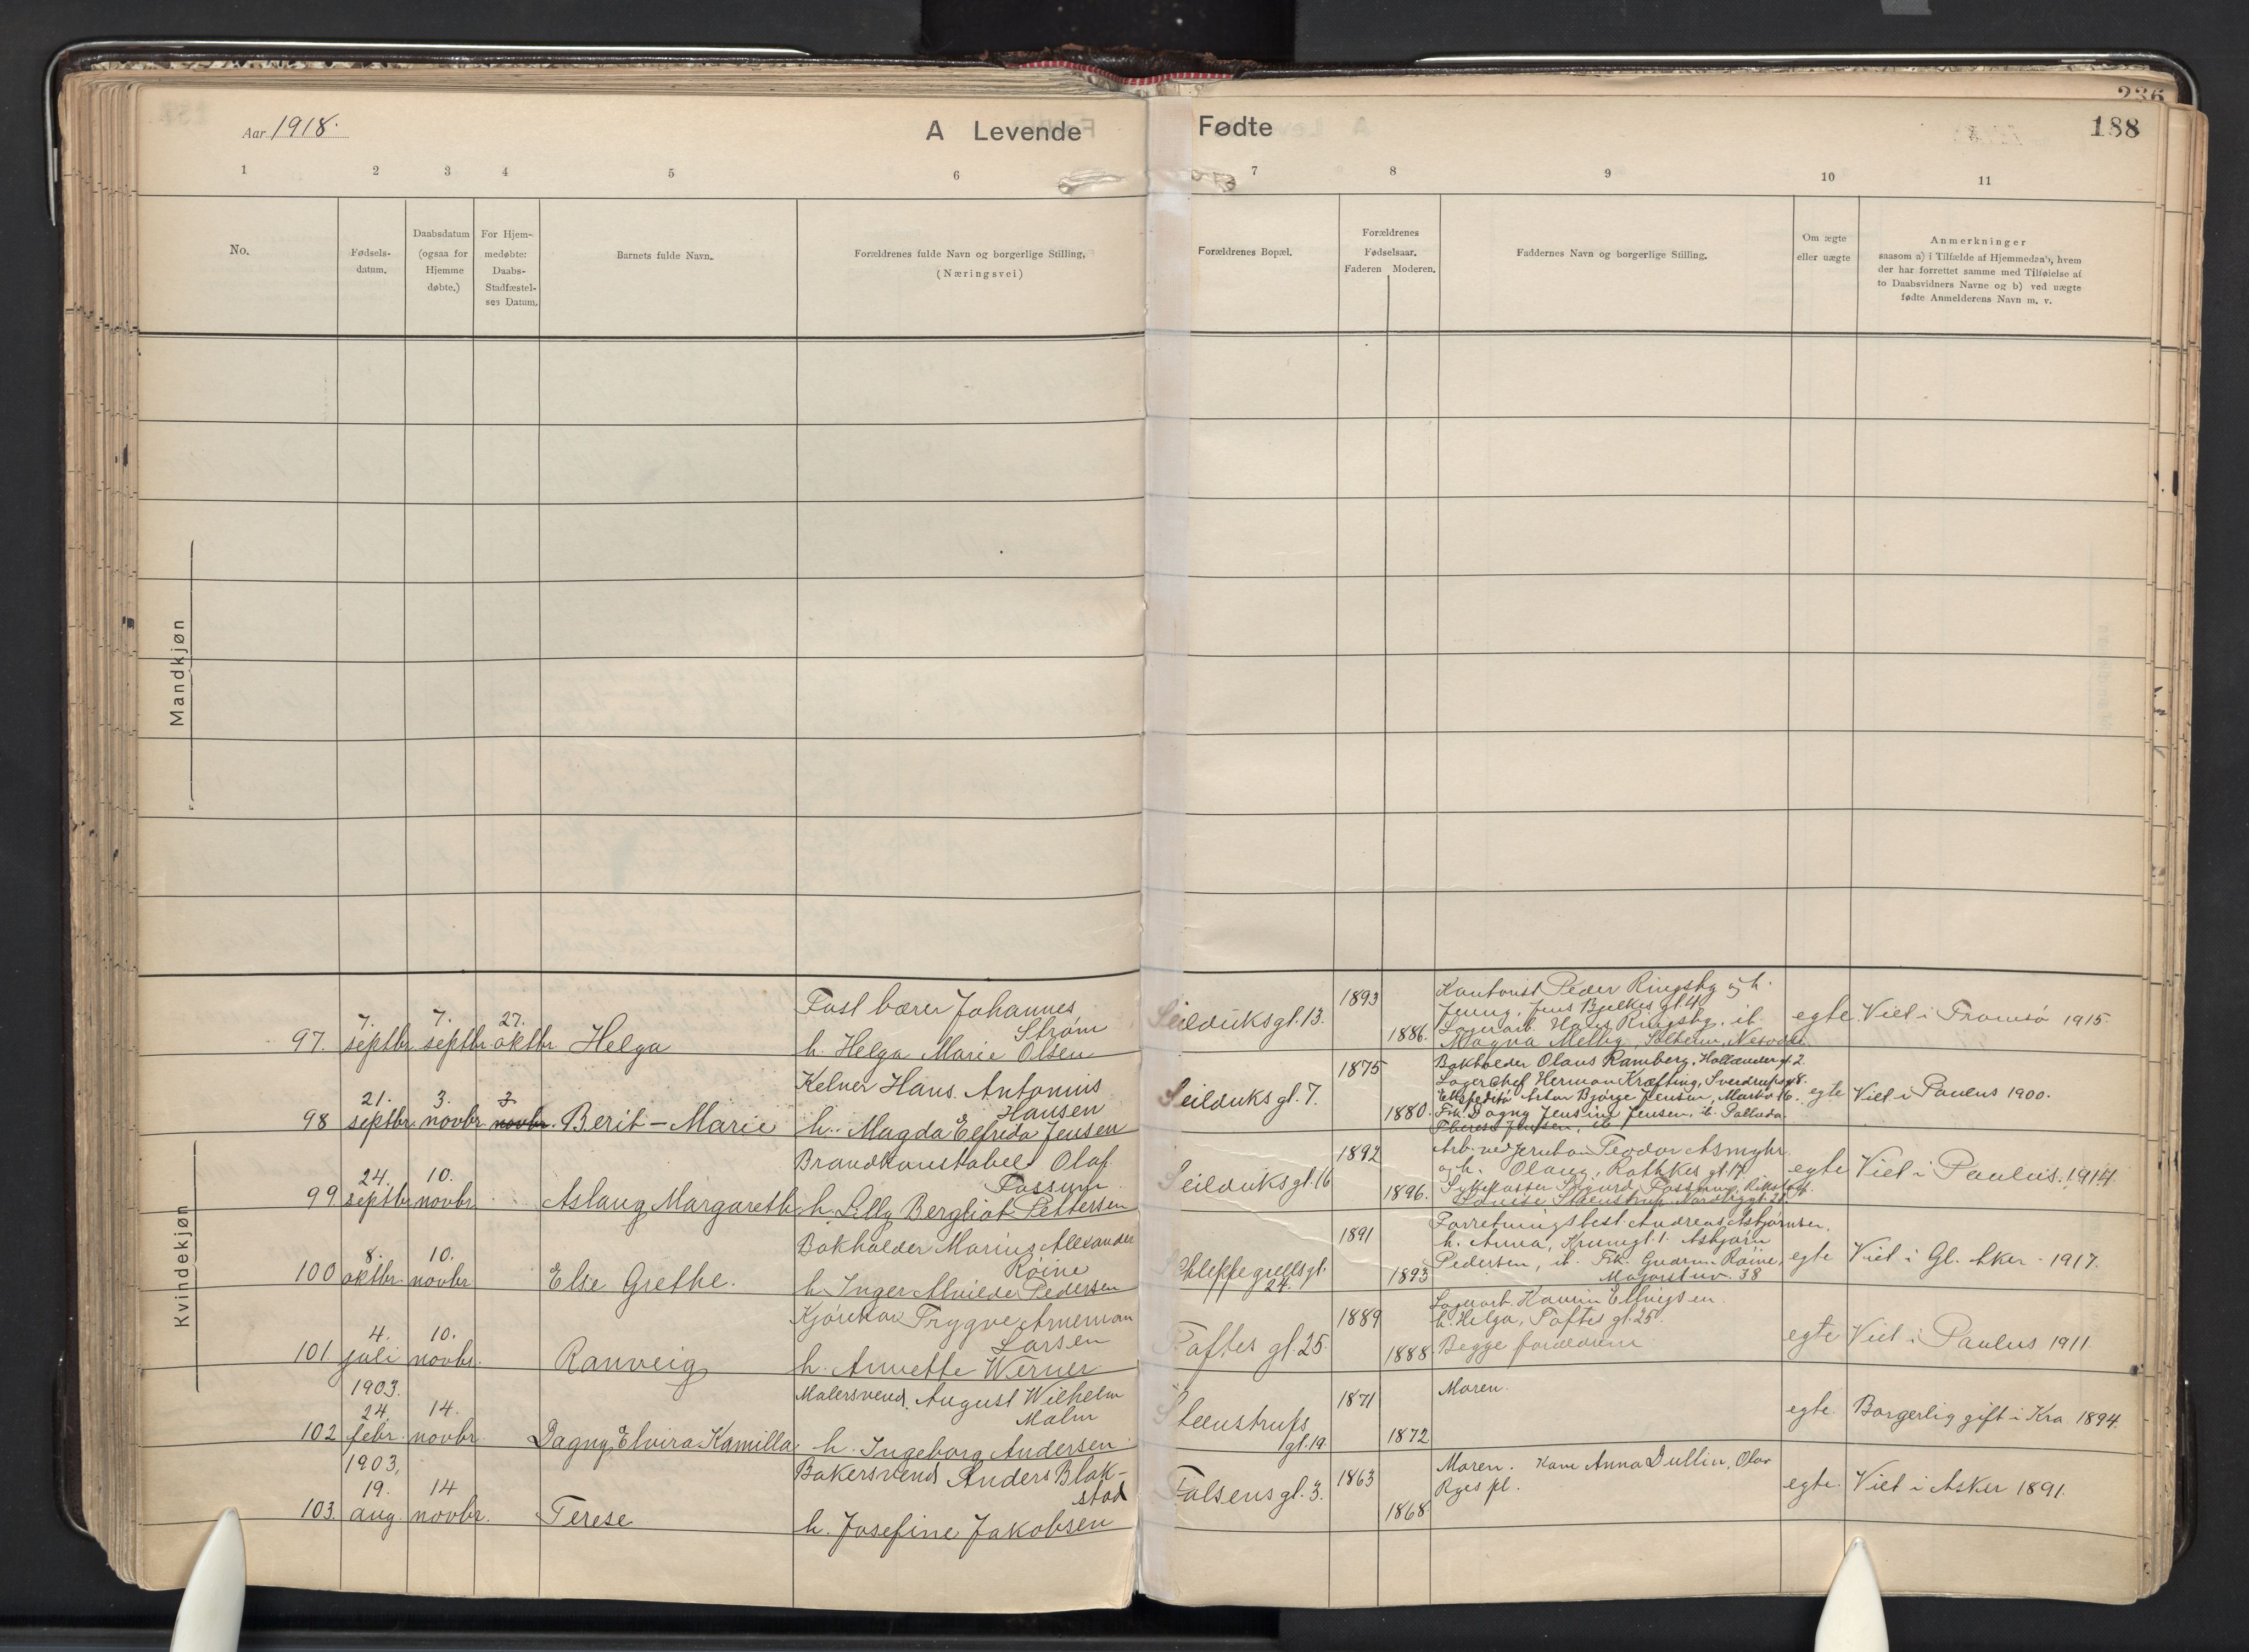 236
Aar 1918.
A Levende
Fødte
188
1 2 3 4 5 6 7 8 9 10 11
No.
Fødsels-
datum.
Daabsdatum
(ogsaa for
Hjemme
døbte.)
For Hjem-
medøbte:
Daabs-
Stadfæstel-
ses Datum.
Barnets fulde Navn.
Forældrenes fulde Navn og borgerlige Stilling.
(Næringsvei)
Forældrenes Bopæl.
Forældrenes
Fødselsaar.
Faderen Moderen.
Faddernes Navn og borgerlige Stilling.
Om ægte
eller uægte
Anmerkninger
saasom a) i Tilfælde af Hjemmedaab, hvem
der har forrettet samme med Tilføielse af
to Daabsvidners Navne og b) ved uægte
fødte Anmelderens Navn m. v.
Mandkjøn
Kvindekjøn
97. 7. septbr. 7. septbr. 27. oktbr. Helga
Johannes
Strøm
h. Helga Marie Olsen
Seilduksgt. 13.
1893
1886.
Kontorist Peder Ringsby og h.
Jenny, Jens Bjelkes gt. 4
Lagerarb. Hans Ringsby, ib.
Magna Melby, Solheim, Nesodden
egte. Viet i Tromsø 1915.
98 21. septbr. 3. novbr. 3. novbr. Berit-Marie
Kelner Hans Antonius
Hansen
h. Magda Elfrida Jensen
Seilduksgt. 7.
1875
1880.
Bokholder Olaus Ramberg, Hollændergt. 2.
Lagerchef Herman Kræfting, Sverdrupsgt 8.
Frk. Dagny Jensine Jensen, ib.
Therese Jensen, ib
egte Viet i Paulus 1900.
99 24. septbr. 10. novbr. Aslaug Margareth
Brandkonstabel Olaf
Fossum
h. Lilly Bergliot Pettersen
Seilduksgt. 16
1892
1896.
Arb. ved Jernban Teodor Asmyhr
og h. Olaug, Rathkes gt. 17
Sigurd Fossum,
egte Viet i Paulus. 1914.
100 8. oktbr. 10. novbr. Else Grethe.
Bokholder Marius Alexander
Roine
h. Inger Alvilde Pedersen
Schleppegrellsgt.
24.
1891
1893
Forretningsbest. Andreas Asbjørnsen,
h. Anna, Krumgt. 1. Asbjørn
Pedersen, ib. Frk. Gudrun Roine,
Majorstuv. 38
egte Viet i Gl. Aker - 1917.
101. 4. juli 10. novbr. Ranveig
Trygve Arneman
Larsen
h. Annette Werner
Toftes gt. 25.
1889
1888.
Lagerarb. Ellingsen
h. Helga, Toftes gt. 25.
Begge forældrene
egte Viet i Paulus 1911
102 1903. 24. febr. 14. novbr. Dagny Elvira Kamilla
Malersvend August Wilhelm
Malm
h. Ingeborg Andersen
Steenstrups
gt. 19
1871
1872
Moren.
egte. Borgerlig gift i Kra. 1894
103. 1903, 19. aug. 14 novbr. Terese
Bakersvend Anders Blak-
stad
h. Josefine Jakobsen
Falsens gt. 3.
1863
1868
Moren. Kone Anna Dullin, Olav
Ryes pl.
egte. Viet i Asker 1891.